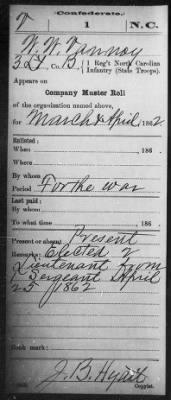 Confederate.
V 1 N.C.
W. W. Vannoy
2 Lt, Co. B, 1 Reg't North Carolina
Infantry (State Troops).
Appears on
Company Muster Roll
of the organization named above,
for March & April, 1862
Enlisted:
When 186
Where
By whom
Period For the war
Last paid:
By whom
To what time 186
Present or absent Present
Remarks: Elected 2
Lieutenant from
1 Sergeant April
25 1862
Book mark:
J. B. Hyatt
Copyist.